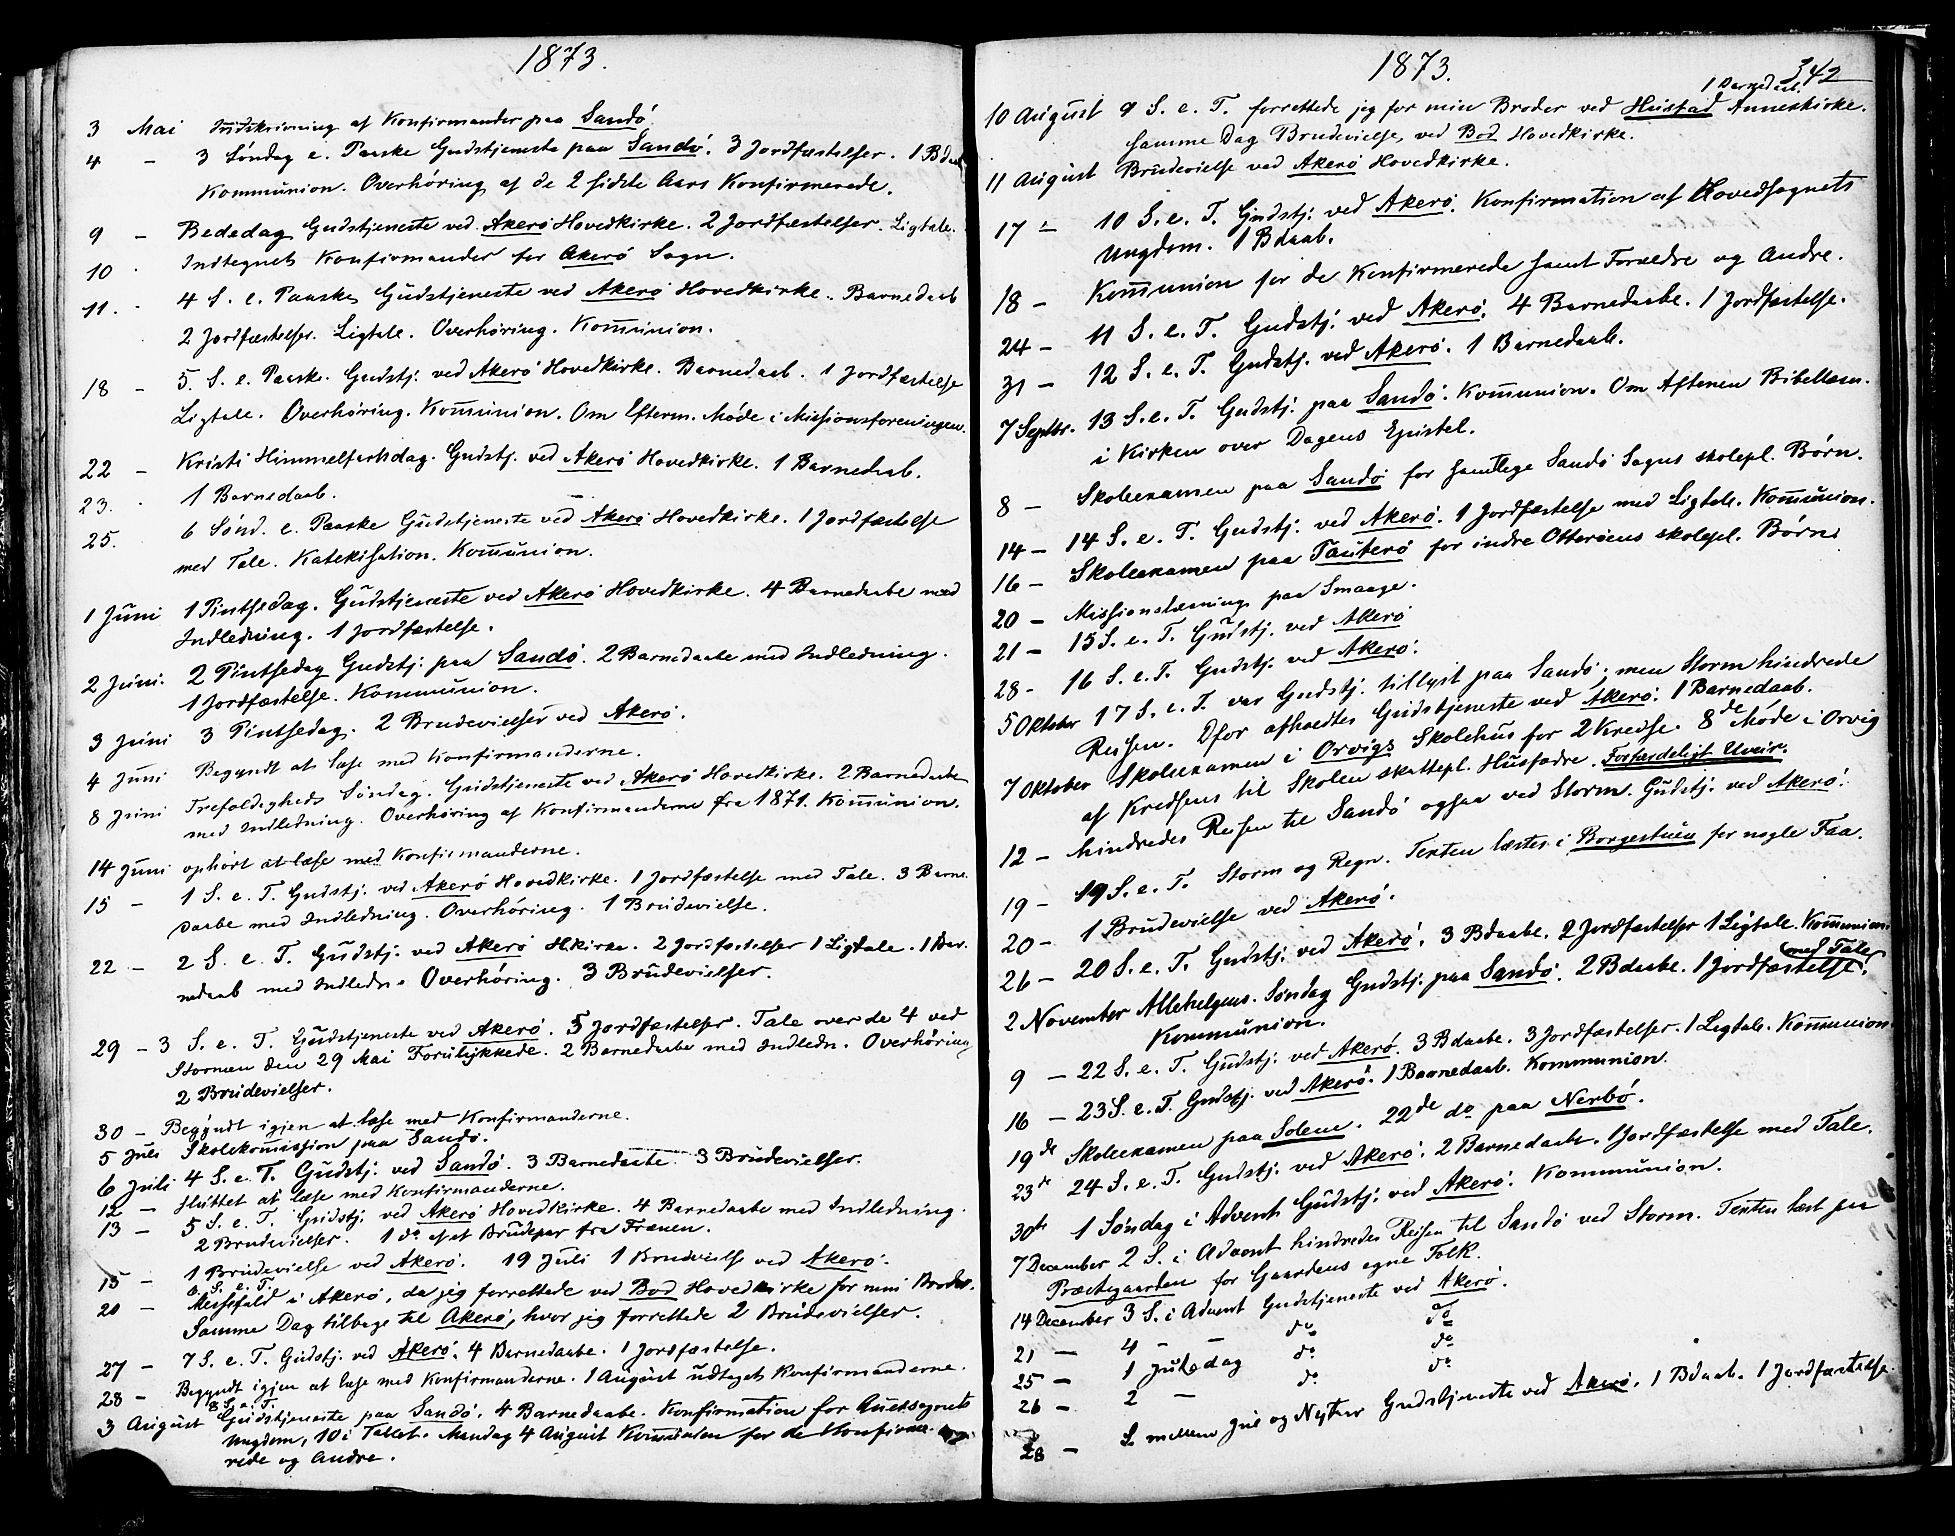 1873.
3 Mai Indskrivning af Konfirmander paa Sandø.
4 - 3 Søndag e. Paaske Gudstjeneste paa Sandø. 3 Jordfæstelser. 1 Bdaab
Kommunion. Overhøring af de 2 sidste Aars Konfirmerede.
9 - Bededag Gudstjeneste ved Akerø Hovedkirke. 2 Jordfæstelser. Ligtale.
10 Indtegnet Konfirmander for Akerø Sogn.
11. 4 S. e. Paaske Gudstjeneste ved Akerø Hovedkirke. Barnedaab
2 Jordfæstelser. Ligtale. Overhøring. Kom̄union.
18 - 5. S. e. Paaske. Gudstj. ved Akerø Hovedkirke. Barnedaab. 1 Jordfæstelse
Ligtale. Overhøring. Kom̄union. Om Efterm. Møde i Missionsforeningen.
22 - Kristi Himmelfartsdag. Gudstj. ved Akerø Hovedkirke. 1 Barnedaab.
23. 1 Barnedaab.
25. 6 Sønd. e. Paaske Gudstjeneste ved Akerø Hovedkirke. 1 Jordfæstelse
med Tale. Katekisation. Kom̄union.
1 Juni 1 Pintsedag. Gudstjeneste ved Akerø Hovedkirke. 4 Barnedaabe med
Indledning. 1 Jordfæstelse.
2 Juni. 2 Pintsedag Gudstj. paa Sandø. 2 Barnedaabe med Indledning.
1 Jordfæstelse. Kommunion.
3 Juni 3 Pintsedag. 2 Brudevielser ved Akerø.
4 Juni Begyndt at læse med Konfirmanderne.
8 Juni Trefoldigheds Søndag. Gudstjeneste ved Akerø Hovedkirke. 2 Barnedaabe
med Indledning. Overhøring af Konfirmanderne fra 1871. Kom̄union.
14 Juni ophørt at læse med Konfirmanderne.
15 - 1 S. e. T. Gudstj. ved Akerø Hovedkirke. 1 Jordfæstelse med Tale. 3 Barne
daabe med Indledning. Overhøring. 1 Brudevielse.
22 - 2 S. e. T. Gudstj. ved Akerø Hkirke. 2 Jordfæstelser 1 Ligtale. 1 Bar.
nedaab med Indledn. Overhøring. 3 Brudevielser.
29 - 3 S. e. T. Gudstjeneste ved Akerø. 5 Jordfæstelser. Tale over de 4 ved
Stormen den 29 Mai Forulykkede. 2 Barnedaabe med Indledn. Overhøring
2 Brudevielser.
30 - Begyndt igjen at læse med Konfirmanderne.
5 Juli Skolekom̄ission paa Sandø.
6 Juli 4 S. e. T. Gudstj. ved Sandø. 3 Barnedaabe. 3 Brudevielser.
12 - Sluttet at læse med Konfirmanderne.
13 - 5 S. e. T. Gudstj. ved Akerø Hovedkirke. 4 Barnedaabe med Indledning.
2 Brudevielser. 1 do af et Brudepar fra Frænen.
15 - 1 Brudevielse ved Akerø. 19 Juli 1 Brudevielse ved Akerø.
6 S. e. T.
20 - Messefald i Akerø, da jeg forrettede ved Bod Hovedkirke for min Broder.
Samme Dag tilbage til Akerø, hvor jeg forrettede 2 Brudevielser.
27 - 7 S. e. T. Gudstj. ved Akerø. 4 Barnedaabe. 1 Jordfæstelse.
28 - Begyndt igjen at læse med Konfirmanderne. 1 August udtaget Konfirmanderne.
8 S. e. T.
3 August Gudstjeneste paa Sandø. 4 Barnedaabe. Konfirmation for Anexsognets
Ungdom, 10 i Tallet. Mandag 4 August Kom̄union for de Konfirme-
rede og Andre.
1873.
342
1 Barnedaab.
10 August 9 S. e. T. forrettede jeg for min Broder ved Hustad Annexkirke.
Samme Dag Brudevielse ved Bod Hovedkirke.
11 August Brudevielse ved Akerø Hovedkirke.
17 - 10 S. e. T. Gudstj. ved Akerø. Konfirmation af Hovedsognets
Ungdom. 1 Bdaab.
18 - Kom̄union for de Konfirmerede samt Forældre og Andre.
24 - 11 S. e. T. Gudstj. ved Akerø. 4 Barnedaabe. 1 Jordfæstelse.
31 - 12 S. e. T. Gudstj. ved Akerø. 1 Barnedaab.
7 Septbr. 13 S. e. T. Gudstj. paa Sandø. Kom̄union. Om Aftenen Bibellæsn.
i Kirken over Dagens Epistel.
8 - Skoleexamen paa Sandø for samtlige Sandø Sogns skolepl. Børn.
14 - 14 S. e. T. Gudstj. ved Akerø. 1 Jordfæstelse med Ligtale. Kom̄union.
16 - Skoleexamen paa Tauterø for indre Otterøens skolepl. Børn.
20 - Missionslæsning paa Smaage.
21 - 15 S. e. T. Gudstj. ved Akerø
28 - 16 S. e. T. Gudstj. ved Akerø.
5 Oktober 17 S. e. T. var Gudstj. tillyst paa Sandø; men Storm hindrede
Reisen. Dfor afholdtes Gudstjeneste ved Akerø. 1 Barnedaab.
7 Oktober Skoleexamen i Orvigs Skolehus for 2 Kredse. 8de Møde i Orvig
af Kredsens til Skolen skattepl. Husfædre. Forfærdeligt Uveir.
12 - hindredes Reisen til Sandø ogsaa ved Storm. Gudstj. ved Akerø.
19 - 19 S. e. T. Storm og Regn. Texten læstes i Borgestuen for nogle Faa.
20 - 1 Brudevielse ved Akerø.
26 - 20 S. e. T. Gudstj. ved Akerø. 3 Bdaabe. 2 Jordfæstelser 1 Ligtale. Kom̄union.
med Tale
2 November Allehelgens Søndag Gudstj. paa Sandø. 2 Bdaabe. 1 Jordfæstelse.
Kommunion.
9 - 22 S. e. T. Gudstj. ved Akerø. 3 Bdaabe. 3 Jordfæstelser. 1 Ligtale. Kom̄union.
16 - 23 S. e. T. Gudstj. ved Akerø. 1 Barnedaab. Kommunion.
19de Skoleexamen paa Solem. 22de do paa Nerbø.
23de 24 S. e. T. Gudstj. ved Akerø. 2 Barnedaabe. 1 Jordfæstelse med Tale.
30te 1 Søndag i Advent Gudstj. ved Akerø. Kommunion.
7 December 2 S. i Advent hindredes Reisen til Sandø ved Storm. Texten læst paa
Præstegaarden for Gaardens egne Folk.
14 December 3 S. i Advent Gudstjeneste ved Akerø.
21 - 4 - - do do
25 - 1 Juledag do do
26 - 2 - do do
28 - S. mellem Jul og Nytaar Gudstjeneste ved Akerø. 1 Bdaab. 1 Jordfæstelse.